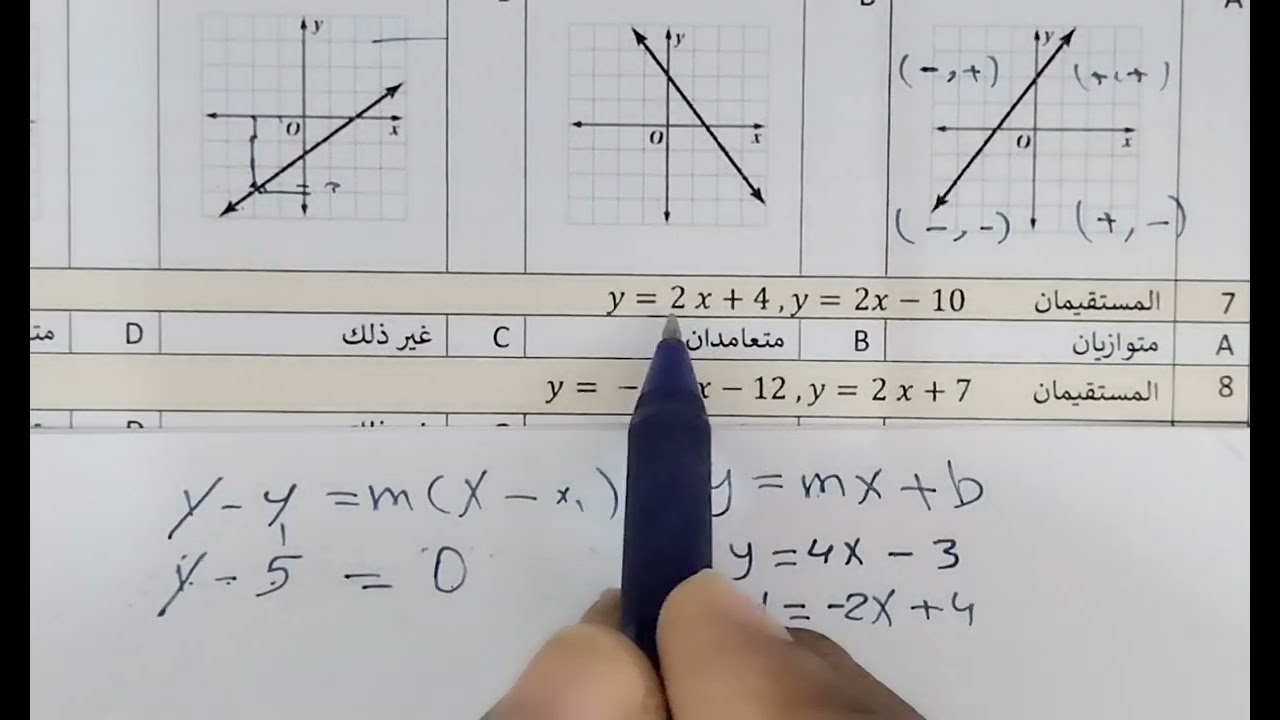 A
B
y
x
O
(-,+)
(+,+)
(-,-)
(+,-)
y
x
O
y
x
O
7 المستقيمان y = 2 x + 4 , y = 2x − 10
A متوازيان B متعامدان C غير ذلك D
8 المستقيمان y = − x − 12 , y = 2 x + 7
y - y1 = m(x - x1)
y = mx + b
y - 5 = 0
y = 4x - 3
= -2x + 4